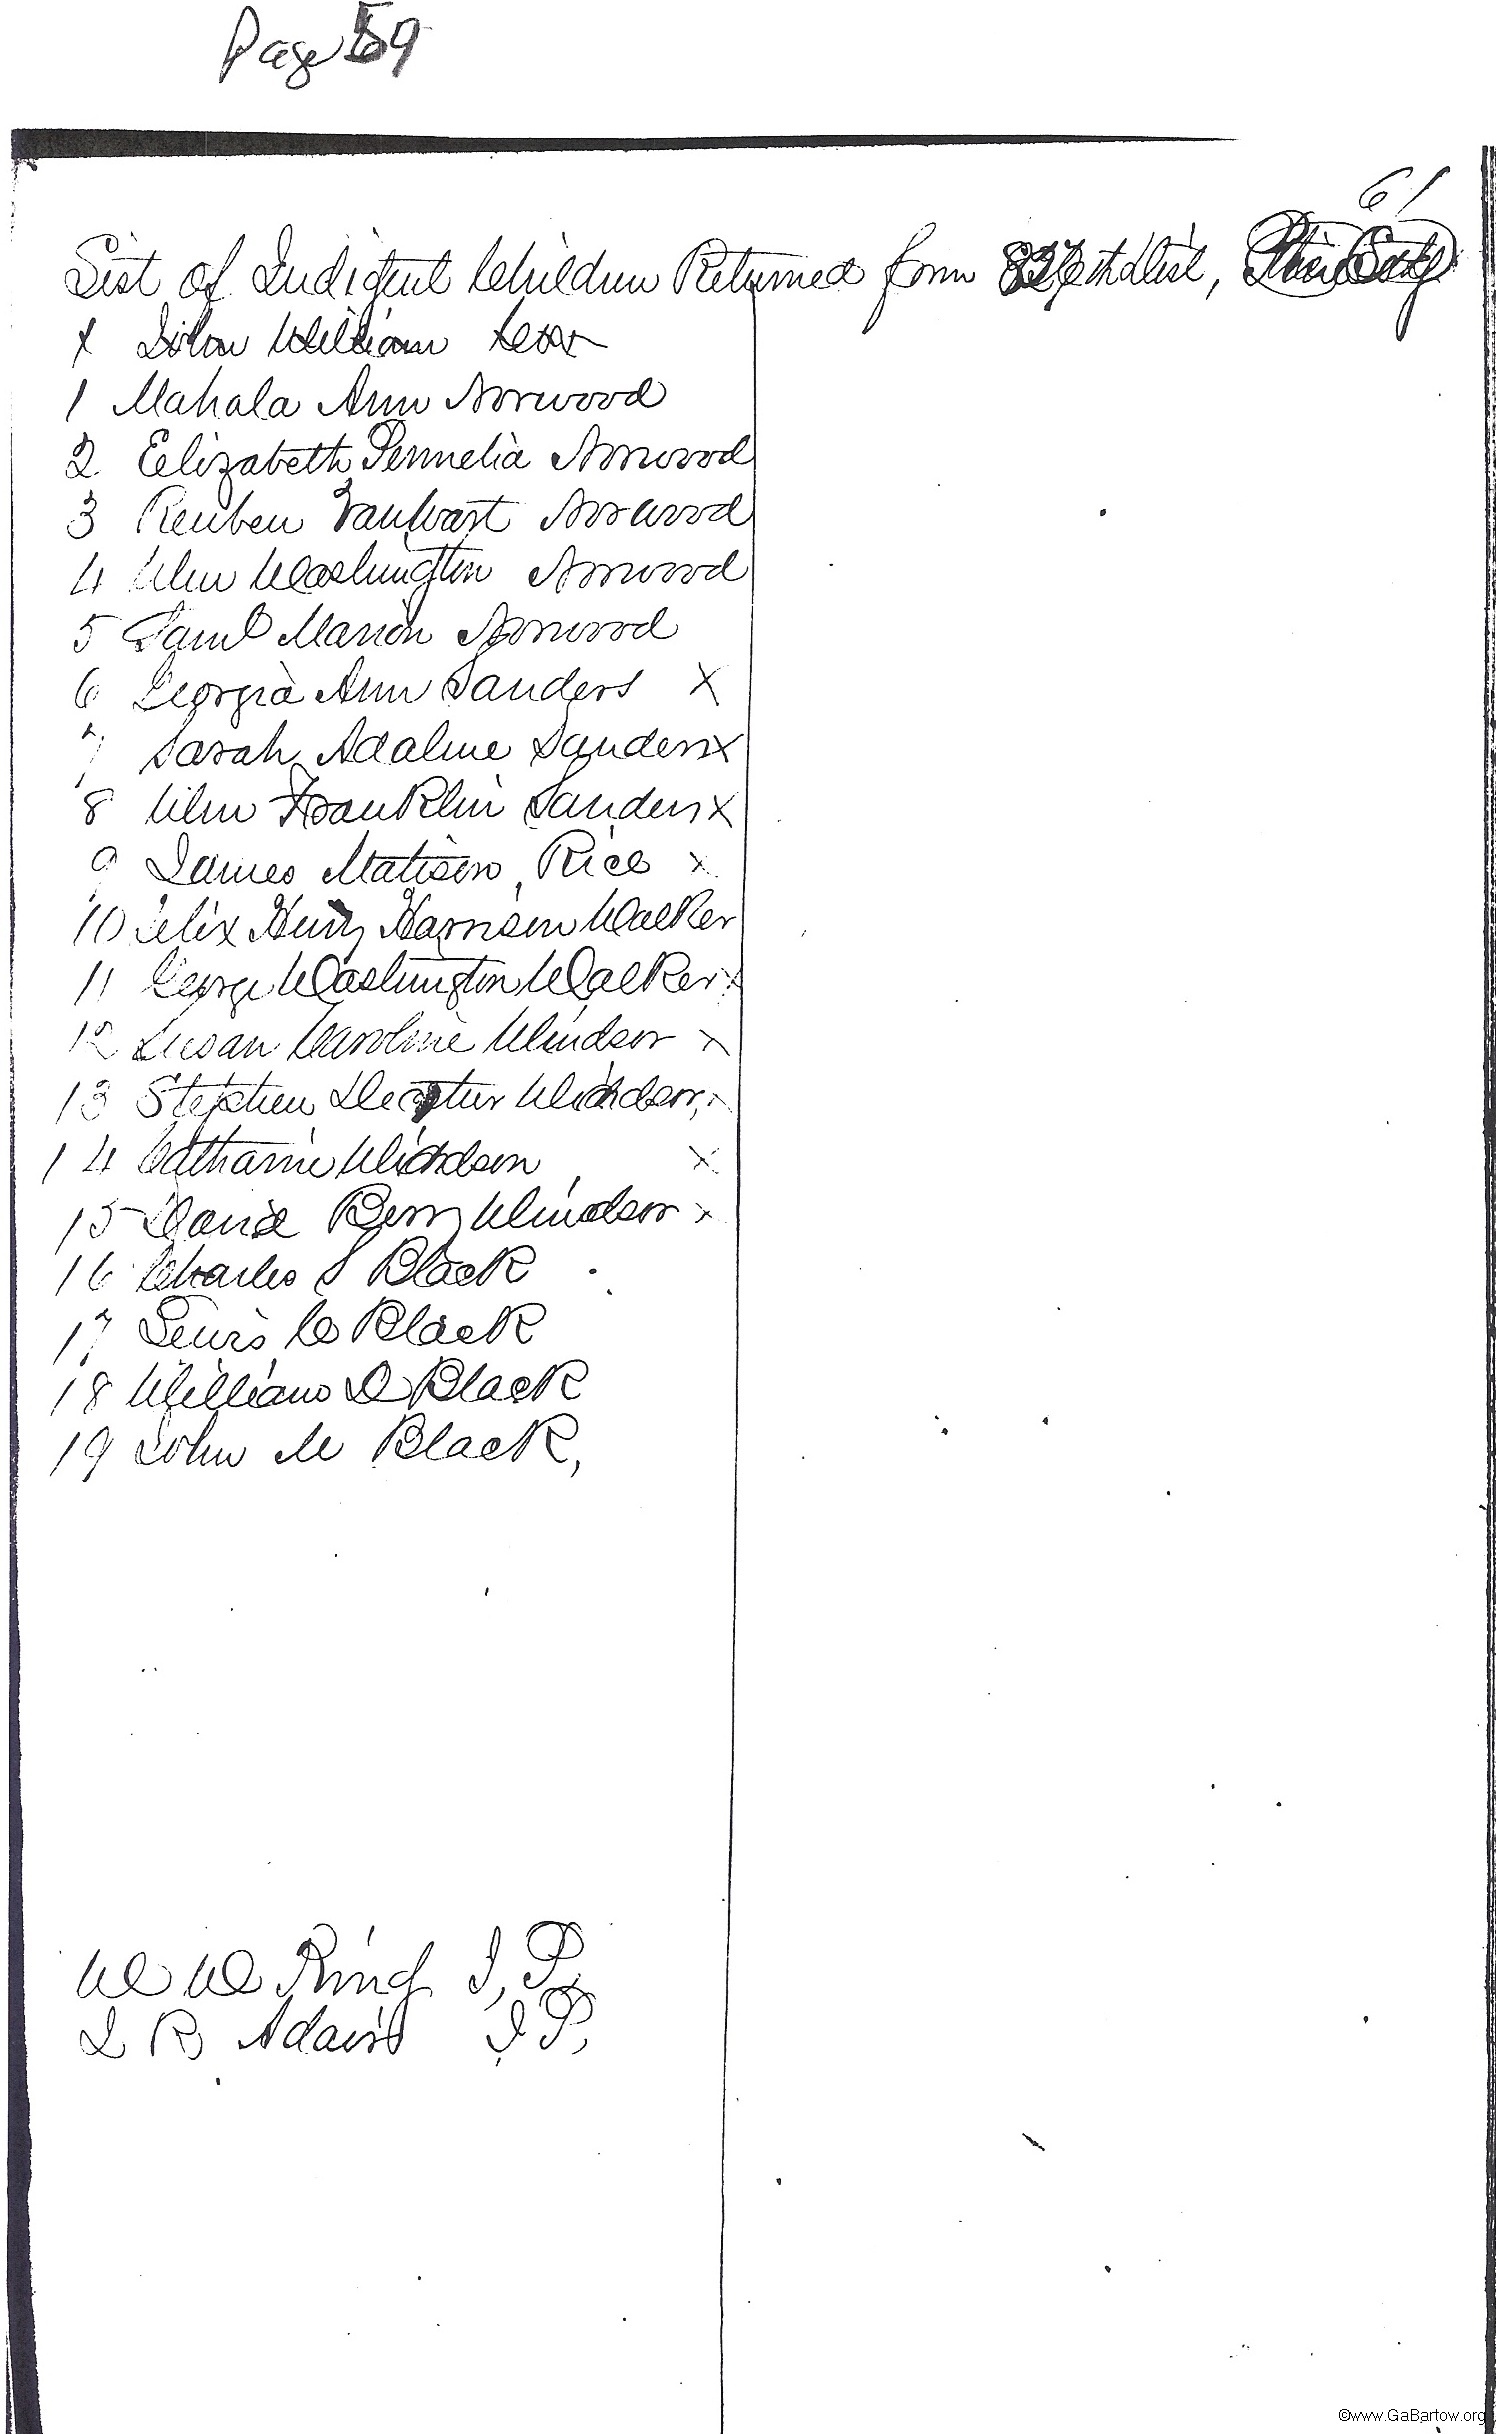 Page 59
61
List of Indigent Children Returned from dist,
x John William
1 Mahala Ann Norwood
2 Elizabeth Permelia Norwood
3 Reuben Norwood
4 Wm Washington Norwood
5 Saml Marion Norwood
6 Georgia Ann Sanders x
7 Sarah Adaline Sanders x
8 Wm Franklin Sanders x
9 James Matison Rice x
10 Felix Henry Harrison Walker
11 George Washington Walker x
12 Susan Caroline Windsor x
13 Stephen Decatur Windsor, x
14 Catharine Windsor x
15 David Berry Windsor x
16 Charles S Black
17 Lewis C Black
18 William D Black
19 John M Black,
W W King J, P,
L B Adair J P,
©www.GaBartow.org